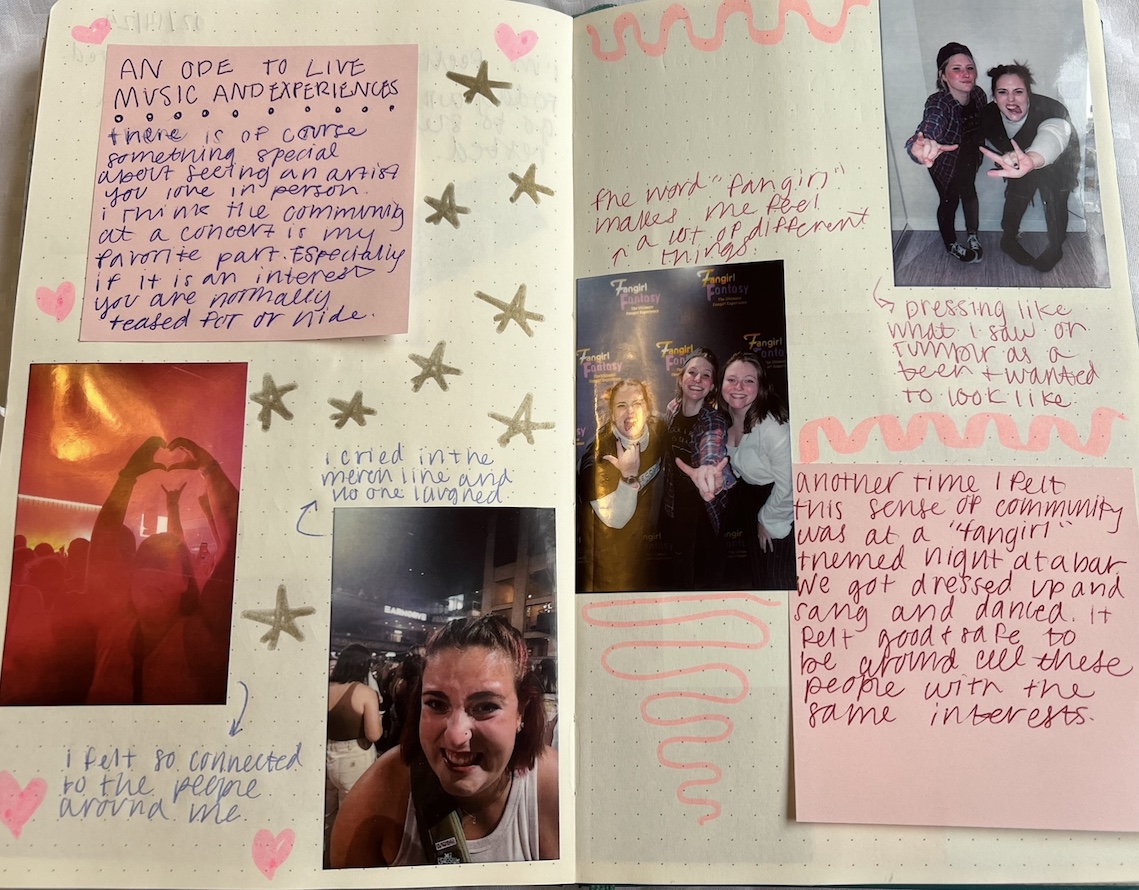 AN ODE TO LIVE
MUSIC AND EXPERIENCES
there is of course
something special
about seeing an artist
you love in person.
i think the community
at a concert is my
favorite part. Especially
if it is an interest
you are normally
teased for or hide.
i cried in the
merch line and
no one laughed.
i felt so connected
to the people
around me.
the word "fangirl"
makes me feel
a lot of different
things.
Fangirl
Fantasy
The Ultimate
Fangirl Experience
Fangirl
Fantasy
The Ultimate
Fangirl Experience
Fangirl
Fantasy
Fangirl
Fantasy
Fangirl
Fantasy
dressing like
what i saw on
tumblr as a
teen + wanted
to look like.
another time I felt
this sense of community
was at a "fangirl"
themed night at a bar
we got dressed up and
sang and danced. it
felt good + safe to
be around all these
people with the
same interests.